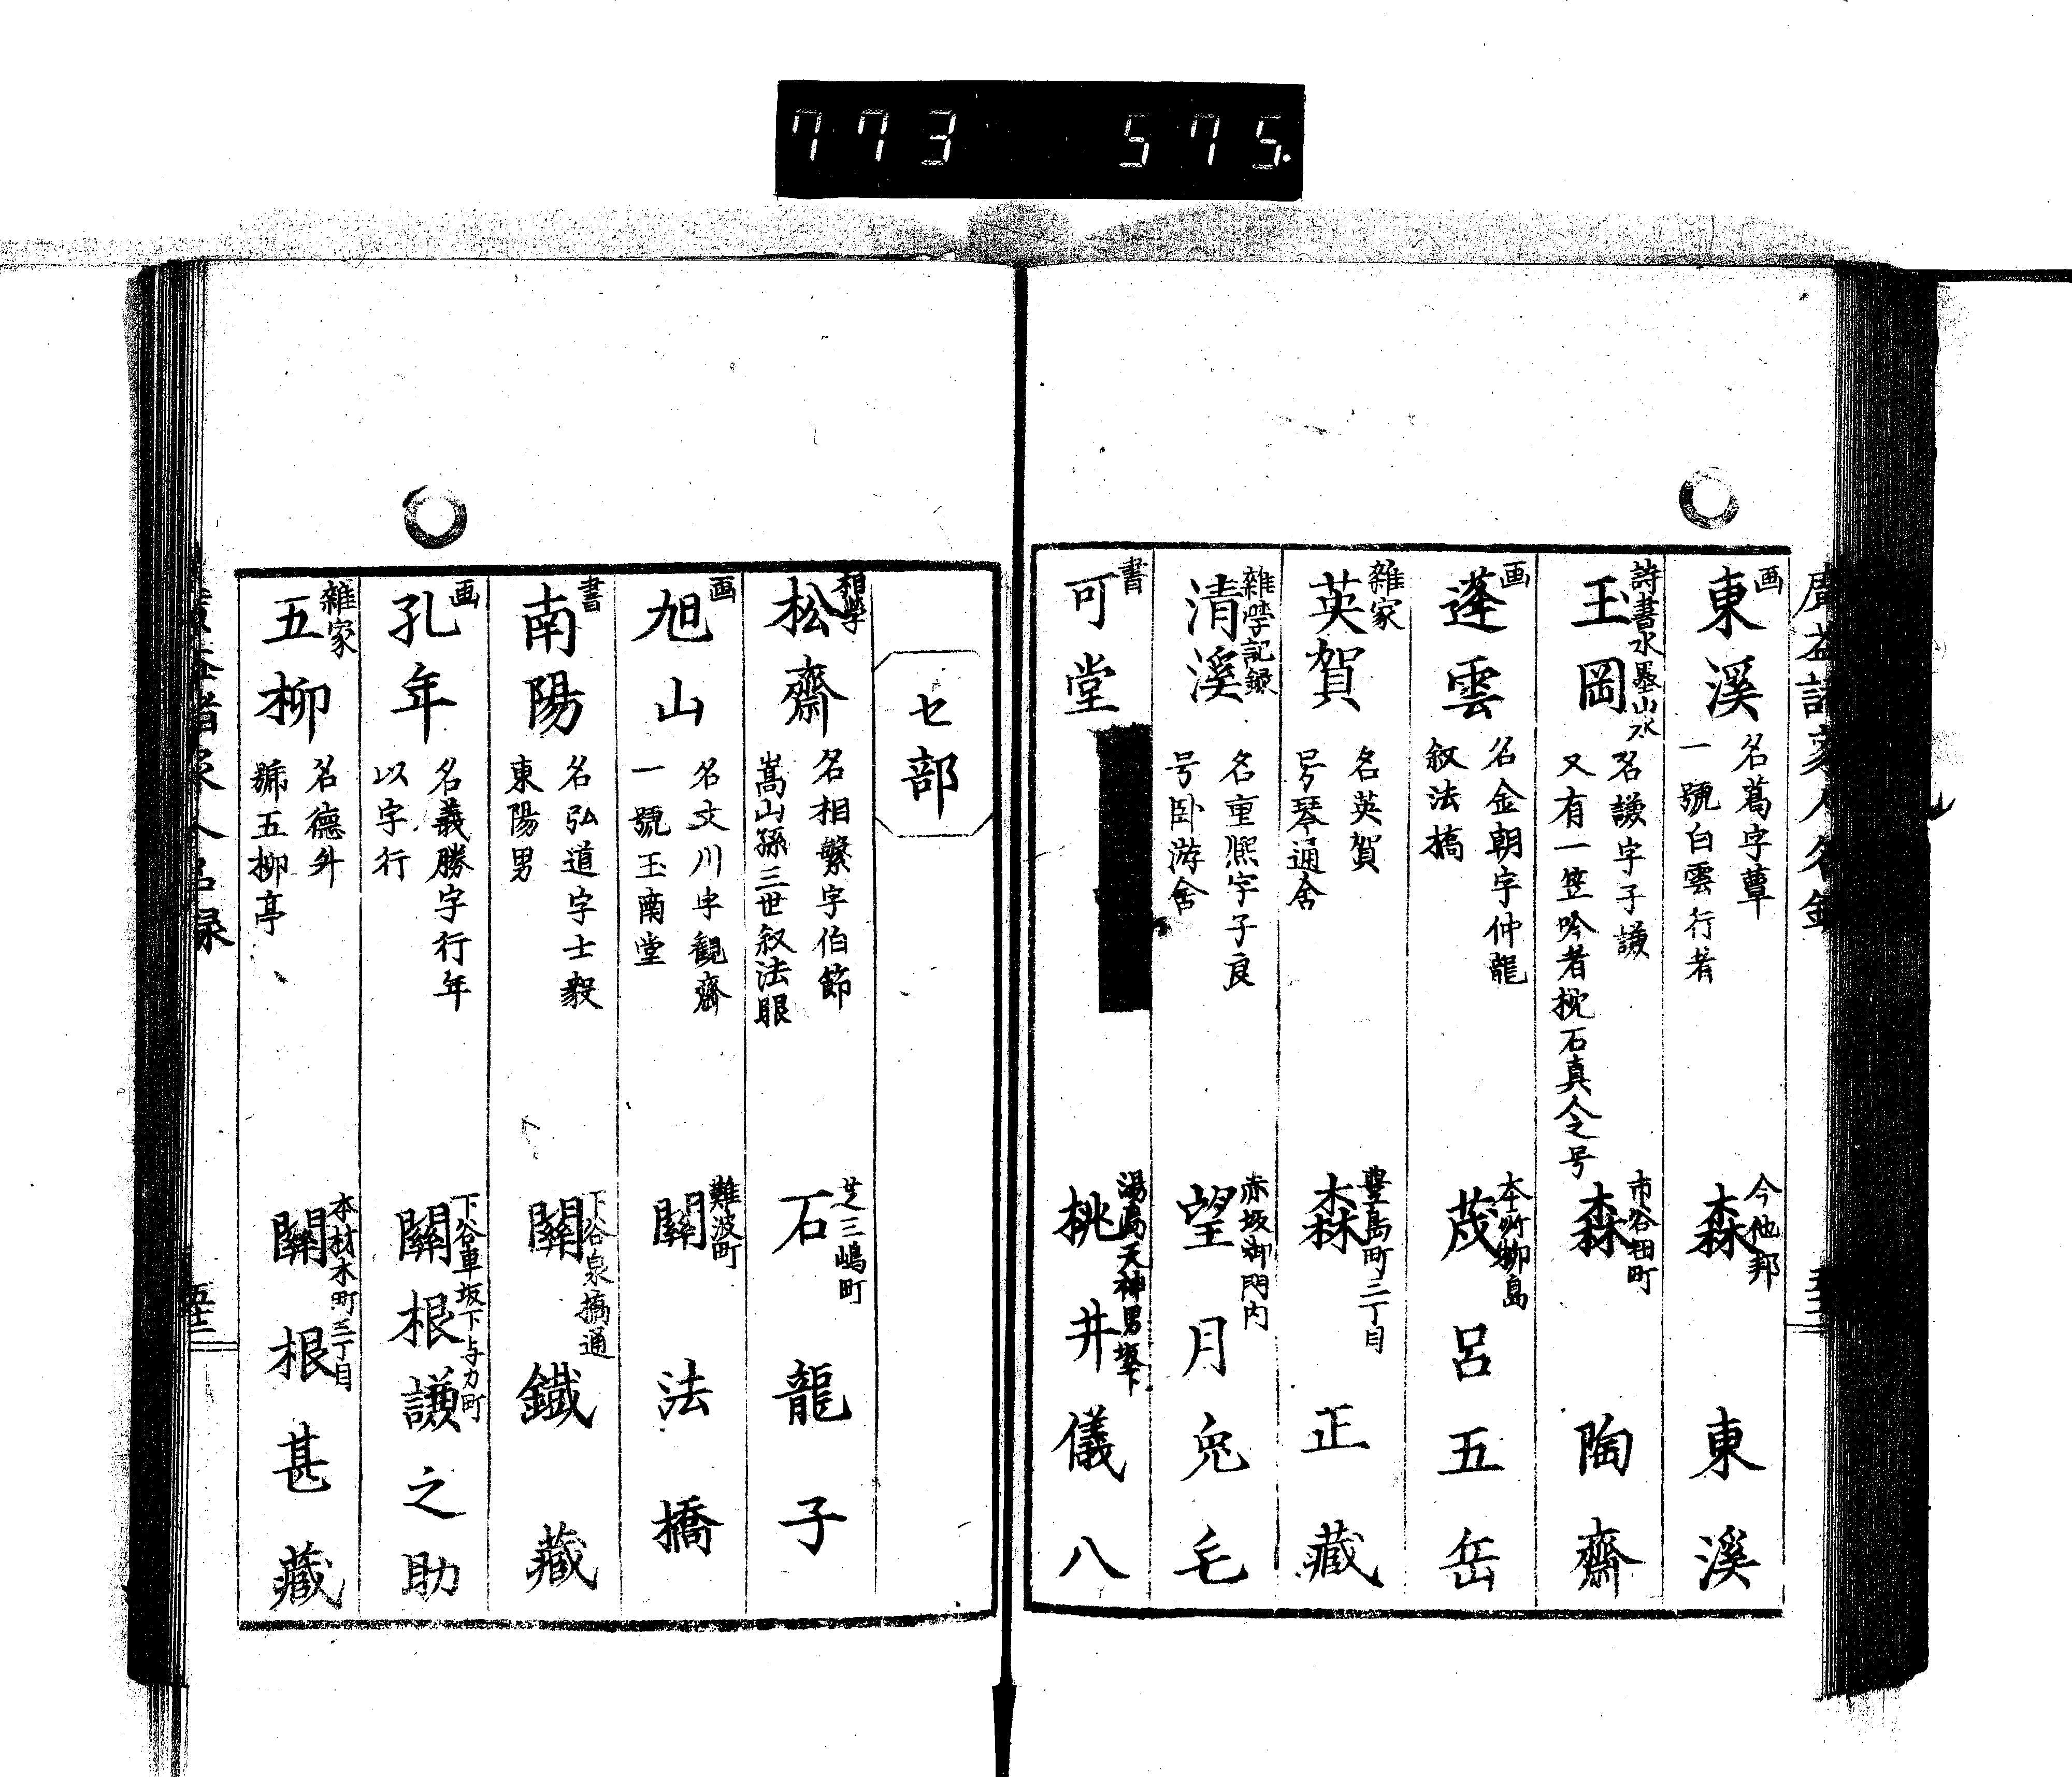 773 575.
画
東溪
名蔦字蕈
一號白雲行者
今他邦
森東溪
詩書水墨山水
玉岡
名謙字子謙
又有一笠吟者枕石真人之号
市谷田町
森陶齋
画
蓬雲
名金朝字仲龍
叙法橋
本所柳島
茂呂五岳
雜家
英賀
名英賀
号琴通舍
豊島町三丁目
森正藏
雜学記録
清溪
名重熈字子良
号卧游舍
赤坂御門内
望月兎毛
書
可堂
湯島天神男坂下
桃井儀八
セ部
相学
松齋
名相繁字伯節
嵩山孫三世叙法眼
芝三嶋町
石龍子
画
旭山
名文川字觀齋
一號玉南堂
難波町
關法橋
書
南陽
名弘道字士毅
東陽男
下谷泉橋通
關鐵藏
画
孔年
名義勝字行年
以字行
下谷車坂下与力町
關根謙之助
雜家
五柳
名德舛
號五柳亭
本材木町三丁目
關根甚藏